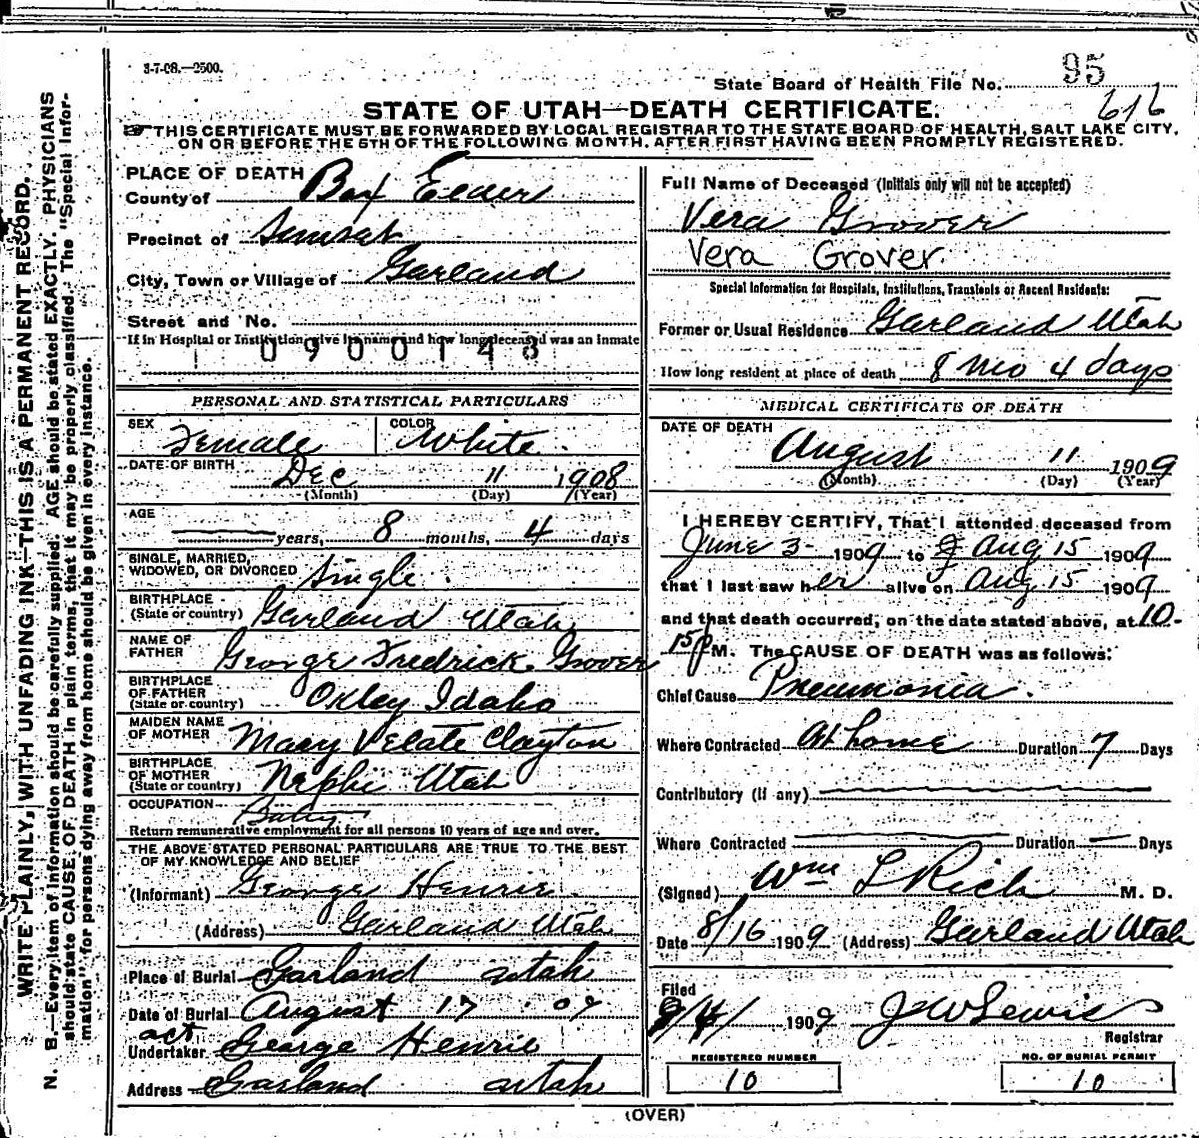 3-7-08.—2500.
State Board of Health File No. 95
616
STATE OF UTAH—DEATH CERTIFICATE.
THIS CERTIFICATE MUST BE FORWARDED BY LOCAL REGISTRAR TO THE STATE BOARD OF HEALTH, SALT LAKE CITY,
ON OR BEFORE THE 5TH OF THE FOLLOWING MONTH, AFTER FIRST HAVING BEEN PROMPTLY REGISTERED.
WRITE PLAINLY, WITH UNFADING INK—THIS IS A PERMANENT RECORD.
N. B.—Every item of information should be carefully supplied. AGE should be stated EXACTLY. PHYSICIANS
should state CAUSE OF DEATH in plain terms, that it may be properly classified. The "Special Infor-
mation" for persons dying away from home should be given in every instance.
PLACE OF DEATH
County of Box Elder
Precinct of
City, Town or Village of Garland
Street and No.
If in Hospital or Institution, give its name and how long deceased was an inmate
0900148
PERSONAL AND STATISTICAL PARTICULARS
SEX Female COLOR White.
DATE OF BIRTH Dec 11 1908
(Month) (Day) (Year)
AGE years, 8 months, 4 days
SINGLE, MARRIED,
WIDOWED, OR DIVORCED Single.
BIRTHPLACE
(State or country) Garland Utah
NAME OF
FATHER George Fredrick Grover
BIRTHPLACE
OF FATHER
(State or country) Oxley Idaho
MAIDEN NAME
OF MOTHER Mary Velate Clayton
BIRTHPLACE
OF MOTHER
(State or country) Nephi Utah
OCCUPATION
Return remunerative employment for all persons 10 years of age and over.
THE ABOVE STATED PERSONAL PARTICULARS ARE TRUE TO THE BEST
OF MY KNOWLEDGE AND BELIEF
(Informant) George Henrie
(Address) Garland Utah
Place of Burial Garland utah
Date of Burial August 17 09
act
Undertaker George Henrie
Address Garland utah
Full Name of Deceased (Initials only will not be accepted)
Vera Grover
Vera Grover
Special Information for Hospitals, Institutions, Transients or Recent Residents:
Former or Usual Residence Garland Utah
How long resident at place of death 8 Mo 4 days
MEDICAL CERTIFICATE OF DEATH
DATE OF DEATH
August 11 1909
(Month) (Day) (Year)
I HEREBY CERTIFY, That I attended deceased from
June 3 1909 to Aug 15 1909
that I last saw her alive on Aug 15 1909
and that death occurred, on the date stated above, at 10-
15 p M. The CAUSE OF DEATH was as follows:
Chief Cause Pneumonia.
Where Contracted At home Duration 7 Days
Contributory (if any)
Where Contracted Duration — Days
(Signed) Wm L Rich M. D.
Date 8/16 1909 (Address) Garland Utah
Filed
1909 J W Lewis
Registrar
REGISTERED NUMBER NO. OF BURIAL PERMIT
10 10
(OVER)